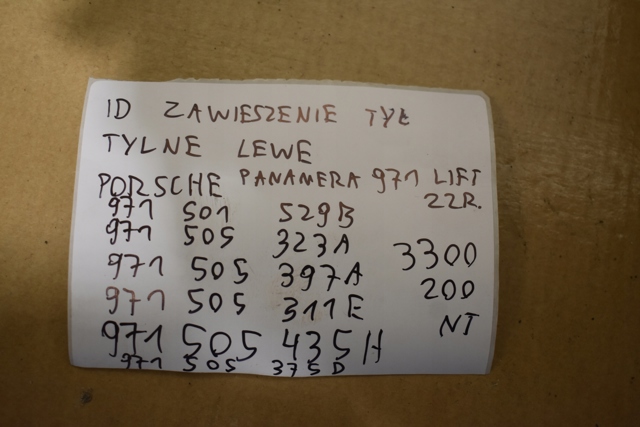 ID ZAWIESZENIE TYŁ
TYLNE LEWE
PORSCHE PANAMERA 971 LIFT
22R.
971 501 529B
971 505 323A
3300
971 505 397A
200
971 505 311E
NT
971 505 435H
971 505 375D